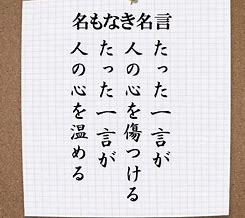 名もなき名言
たった一言が
人の心を傷つける
たった一言が
人の心を温める